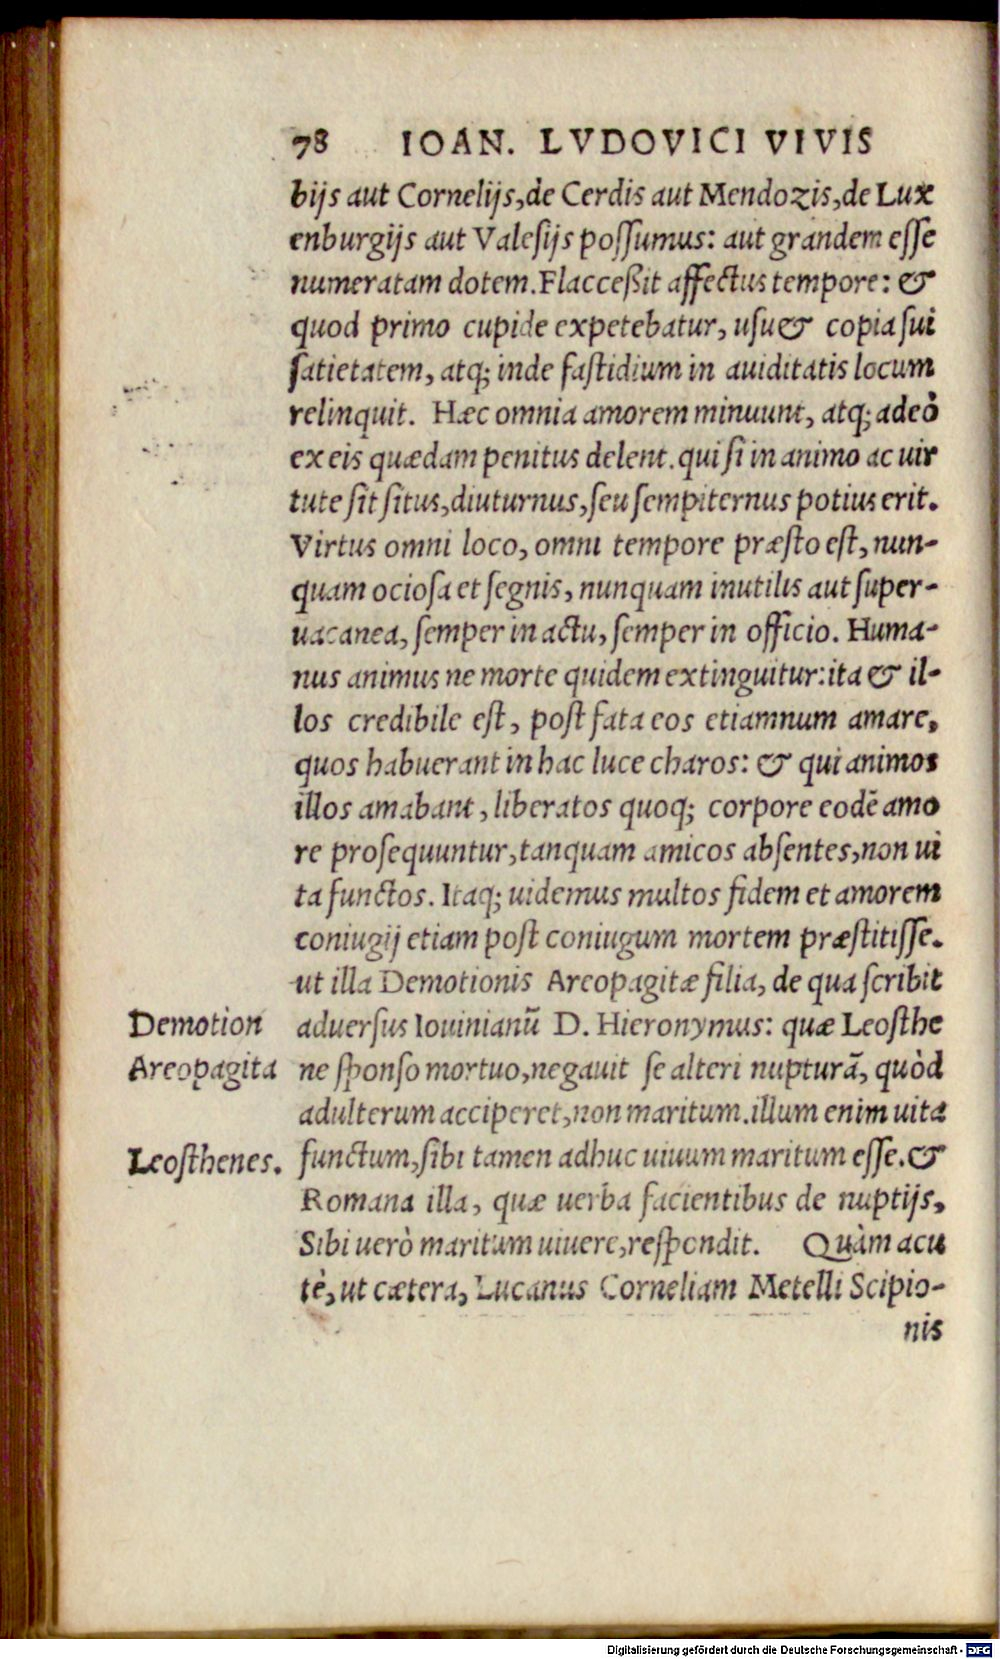 78 IOAN. LVDOVICI VIVIS
bijs aut Cornelijs, de Cerdis aut Mendozis, de Lux
enburgijs aut Valesijs possumus: aut grandem esse
numeratam dotem. Flacceßit affectus tempore: &
quod primo cupide expetebatur, usu & copia sui
satietatem, atq; inde fastidium in auiditatis locum
relinquit. Hæc omnia amorem minuunt, atq; adeò
ex eis quædam penitus delent. qui si in animo ac uir
tute sit situs, diuturnus, seu sempiternus potius erit.
Virtus omni loco, omni tempore præsto est, nun-
quam ociosa et segnis, nunquam inutilis aut super-
uacanea, semper in actu, semper in officio. Huma-
nus animus ne morte quidem extinguitur: ita & il-
los credibile est, post fata eos etiamnum amare,
quos habuerant in hac luce charos: & qui animos
illos amabant, liberatos quoq; corpore eodē amo
re prosequuntur, tanquam amicos absentes, non ui
ta functos. Itaq; uidemus multos fidem et amorem
coniugij etiam post coniugum mortem præstitisse.
ut illa Demotionis Areopagitæ filia, de qua scribit
Demotion aduersus Iouinianū D. Hieronymus: quæ Leosthe
Areopagita ne sponso mortuo, negauit se alteri nupturā, quòd
adulterum acciperet, non maritum. illum enim uita
Leosthenes. functum, sibi tamen adhuc uiuum maritum esse. &
Romana illa, quæ uerba facientibus de nuptijs,
Sibi uerò maritum uiuere, respondit. Quàm acu
tè, ut cætera, Lucanus Corneliam Metelli Scipio-
nis
Digitalisierung gefördert durch die Deutsche Forschungsgemeinschaft - DFG